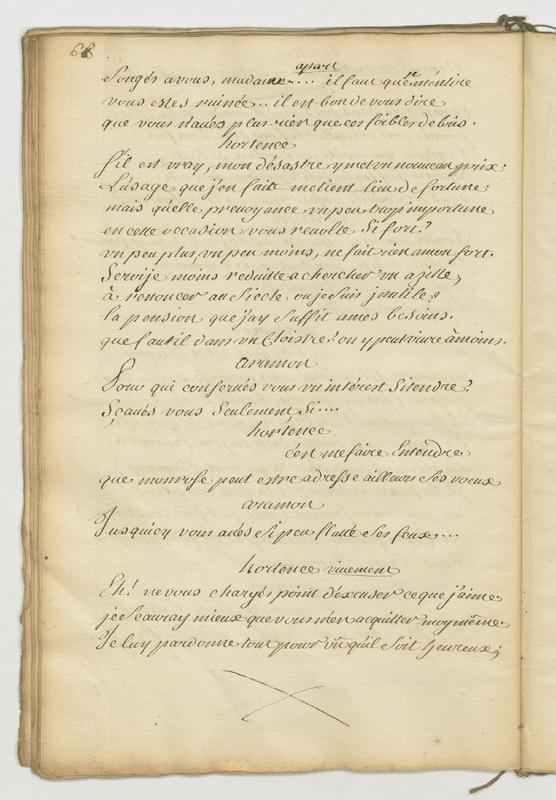 68
apart
Songés a vous, madame..... il faut qu'en mentire
vous estes ruinée... il est bon de vous dire
que vous n'aués plus rien que ces foibles debris.
hortence
S'il est vray, mon désastre y met un nouveau prix;
L'usage que j'en fait me tient lieu de fortune;
mais quelle prevoyance un peu trop importune
en cette occasion vous revolte si fort?
un peu plus, un peu moins, ne fait rien a mon fort.
Seroije moins reduitte a chercher un azille,
à renoncer au siécle ou je suis jnutile;
la pension que j'ay suffit a mes besoins.
que faut il dans un Cloistre? on y peut vivre à moins.
aramon
Pour qui conserués vous un intérest si tendre?
Sçaués vous seulement si....
hortence
c'en me faire Entendre
que monrose peut estre adresse ailleurs ses voeux
aramon
Jusqu'icy vous aués si peu flatté ses feux....
hortence vivement
Eh! ne vous chargés point d'excuser ce que j'aime.
je sçauray mieux que vous m'en acquitter moy même.
Je luy pardonne tout pour vû qu'il soit heureux;